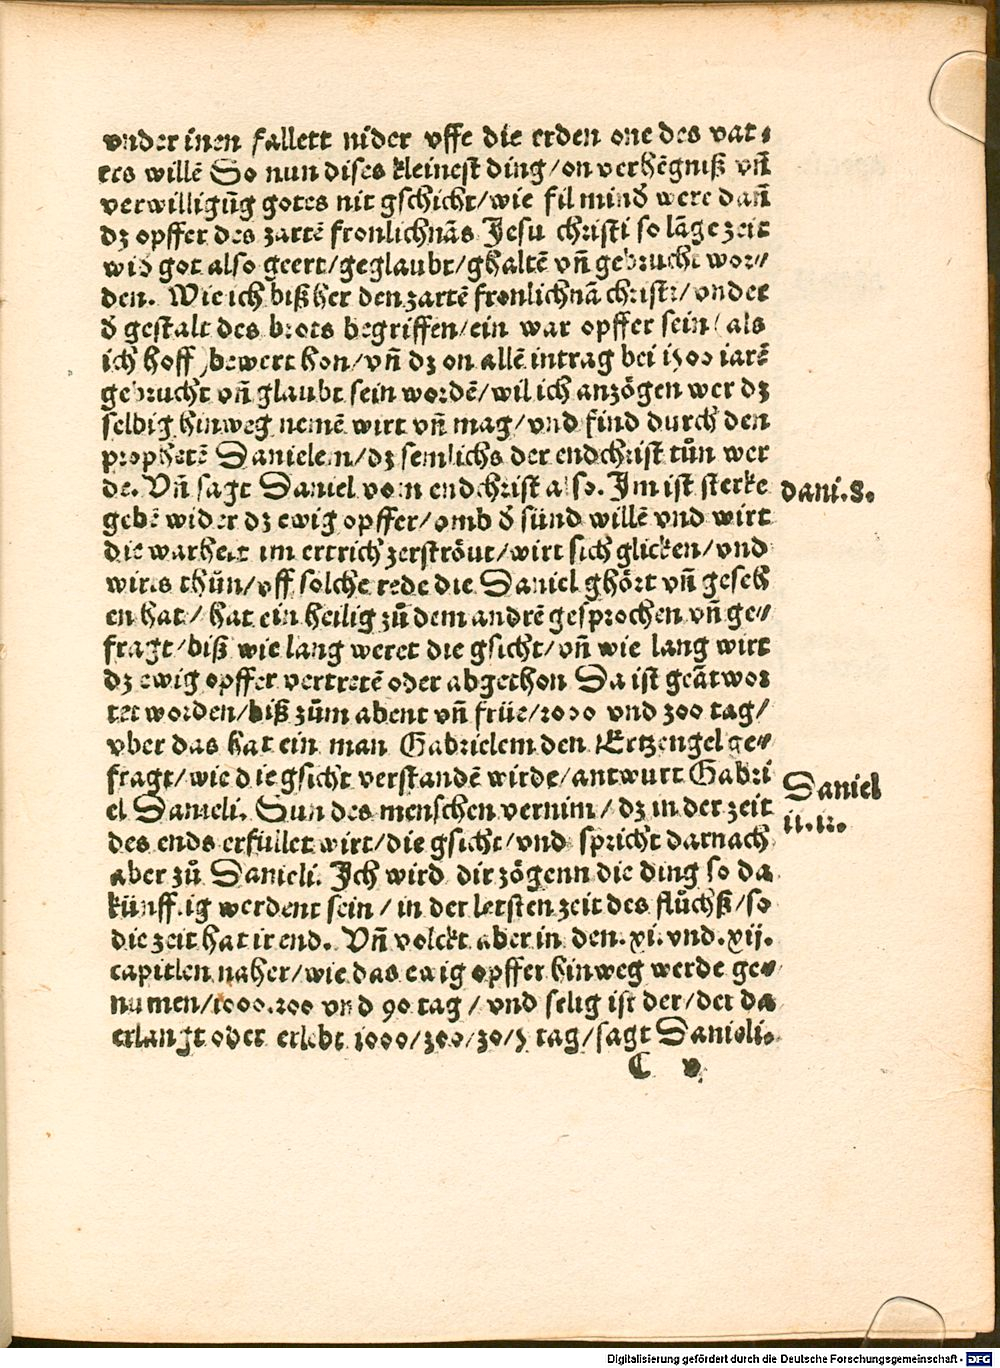 vnder inen fallett nider vffe die erden one des vat⸗
ers willē So nun dises kleinest ding/on verhēgniß vñ
verwilligūg gotes nit gschicht/wie fil mind were dañ
dz opffer des zartē fronlichnās Jesu christi so lāge zeit
wid got also geert/geglaubt/ghaltē vñ gebrucht wor⸗
den. Wie ich biß her den zartē fronlichnā christi/vnder
d gestalt des brots begriffen/ein war opffer sein (als
ich hoff) bewert hon/vñ dz on allē intrag bei 1500 iarē
gebrucht vñ glaubt sein wordē/wil ich anzögen wer dz
selbig hinweg nemē wirt vñ mag/vnd find durch den
prophetē Danielem/dz semlichs der endchrist tůn wer
de. Vñ sagt Daniel vom endchrist also. Im ist sterke
dani.8.
gebē wider dz ewig opffer/vmb d sünd willē vnd wirt
die warheit im ertrich zerströut/wirt sich glicken/vnd
wirts thůn/vff solche rede die Daniel ghört vñ geseh
en hat/hat ein heilig zů dem andrē gesprochen vñ ge⸗
fragt/biß wie lang weret die gsicht/vñ wie lang wirt
dz ewig opffer vertretē oder abgethon Da ist geātwor
tet worden/biß zům abent vñ früe/2000 vnd 300 tag/
vber das hat ein man Gabrielem den Ertzengel ge⸗
fragt/wie d ie gsicht verstandē wirde/antwurt Gabri
el Danieli. Sun des menschen vernim/dz in der zeit
Daniel
11.12.
des ends erfüllet wirt/die gsicht/vnd spricht darnach
aber zů Danieli. Ich wird dir zögenn die ding so da
künfftig werdent sein/in der letsten zeit des flůchß/so
die zeit hat ir end. Vñ volckt aber in den.xi.vnd.xij.
capitlen naher/wie das ewig opffer hinweg werde ge⸗
numen/1000.200 vnd 90 tag/vnd selig ist der/der da
erlangt oder erlebt 1000/300/30/5 tag/sagt Danieli.
C v
Digitalisierung gefördert durch die Deutsche Forschungsgemeinschaft - DFG